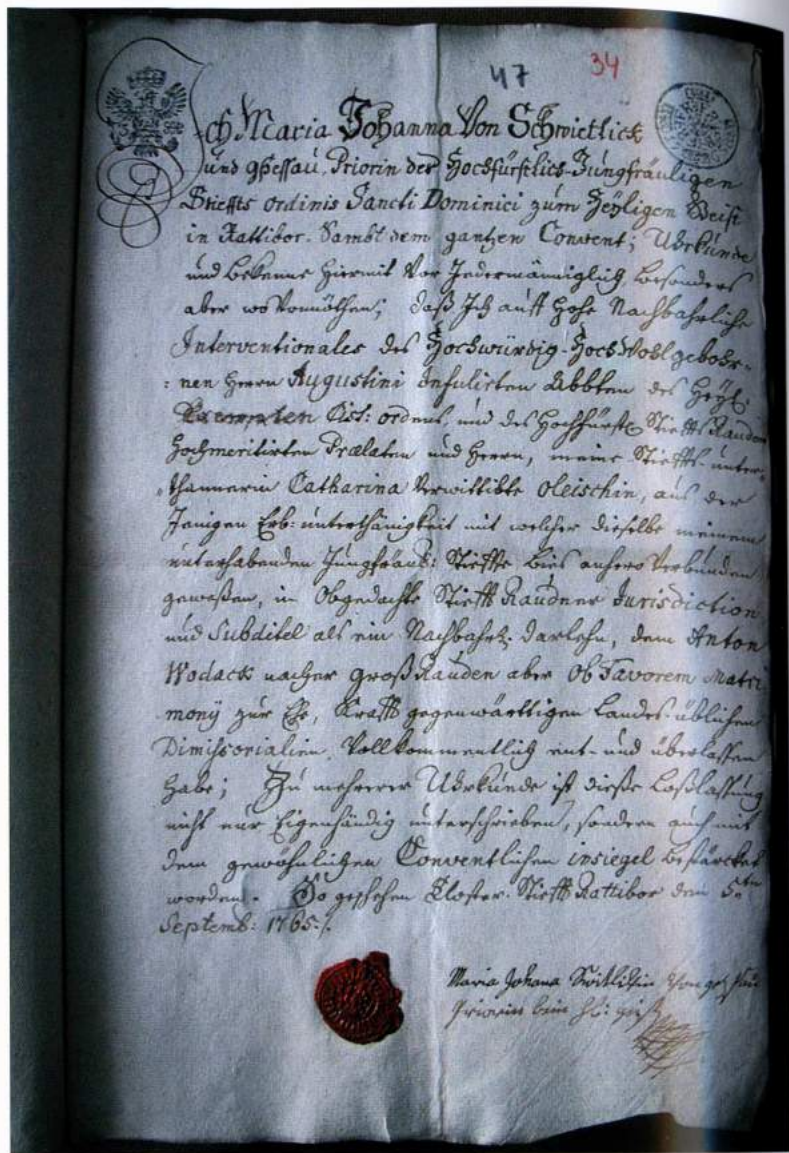 47 34
Ich Maria Johanna Von Schwietlick
und gheßau, Priorin des Hochfürstlich-Jungfräuligen
Stieffts ordinis Sancti Dominici zum Heyligen Geist
in Rattibor. Sambt dem gantzen Convent; Uhrkunde
und bekenne hiermit Vor Jedermänniglich, besonders
aber wo Vonnöthen; daß Ich auff hohe Nachbahrliche
Interventionales des Hochwürdig-Hoch Wohl gebohr-
nen Herrn Augustini Infulirten Abbten des Heyl:
Exempten Cist: ordens, und des Hochfürstl: Stieffts Rauden
Hochmeritirten Prælaten und Herrn, meine Stieffts-unter-
thannerin Catharina Verwittibte Oleischin, aus der
Jenigen Erb-unterthänigkeit mit welcher dieselbe meinem
unterhabenden Jungfräul: Stieffte bies anhero Verbunden
geweßen, in Obgedachte Stiefft Raudner Jurisdiction
und Subditel als ein Nachbahrl: Darlehn, dem Anton
Wodack nacher Groß Rauden aber Ob Favorem Matri
monÿ zur Ehe, Krafft gegenwärttigen Landes-üblichen
Dimissorialien, Vollkommentlich ent- und überlassen
habe; Zu mehrerer Uhrkunde ist dieße Loßlassung
nicht nur Eigenhändig unterschrieben, sondern auch mit
dem gewöhnlichen Conventlichen insiegel bestärcket
worden. So geschehen Closter-Stiefft Rattibor den 5ten
Septemb: 1765.
Maria Johana
Priorin beim hl: geist